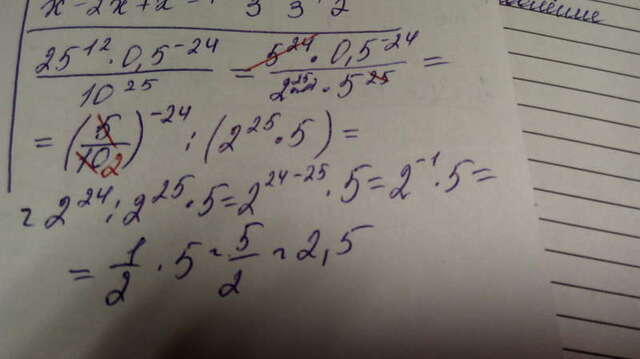 25^12 · 0,5^-24 / 10^25 = 5^24 · 0,5^-24 / 2^25 · 5^25 =
= (5/10 2)^-24 : (2^25 · 5) =
= 2^24 : 2^25 · 5 = 2^24-25 · 5 = 2^-1 · 5 =
= 1/2 · 5 = 5/2 = 2,5